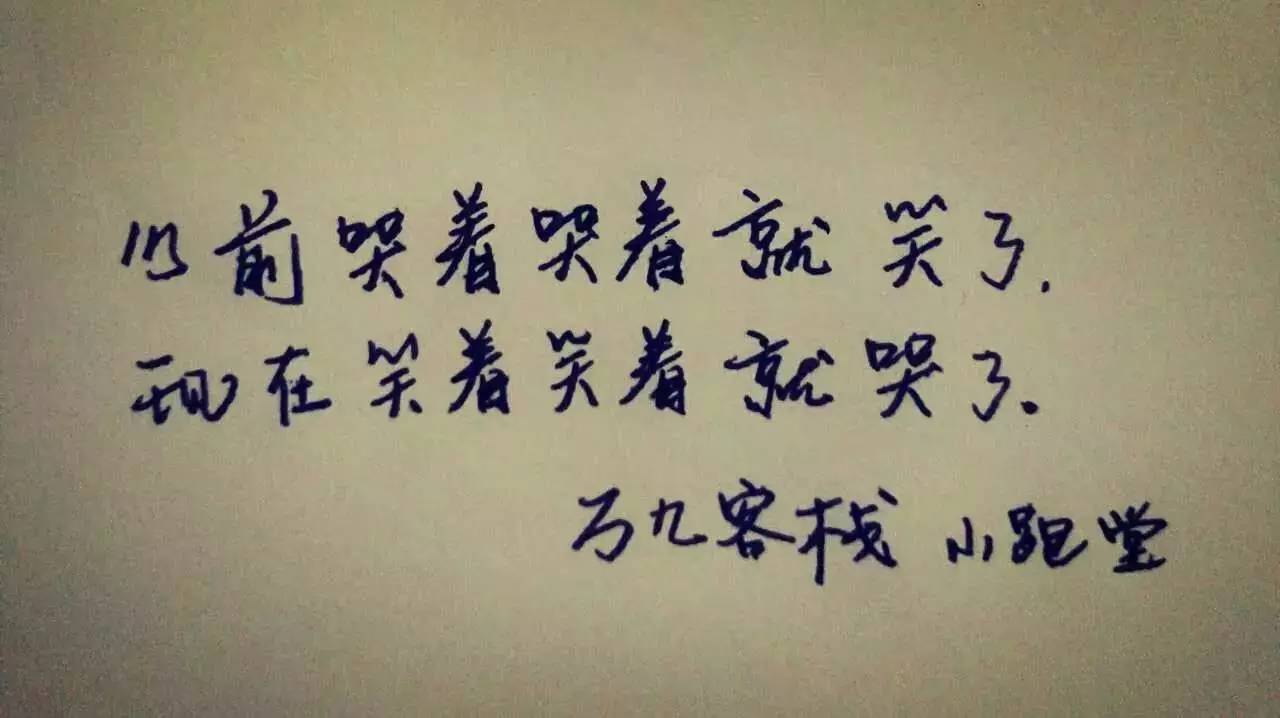 以前哭着哭着就笑了.
现在笑着笑着就哭了.
九客栈 小跑堂